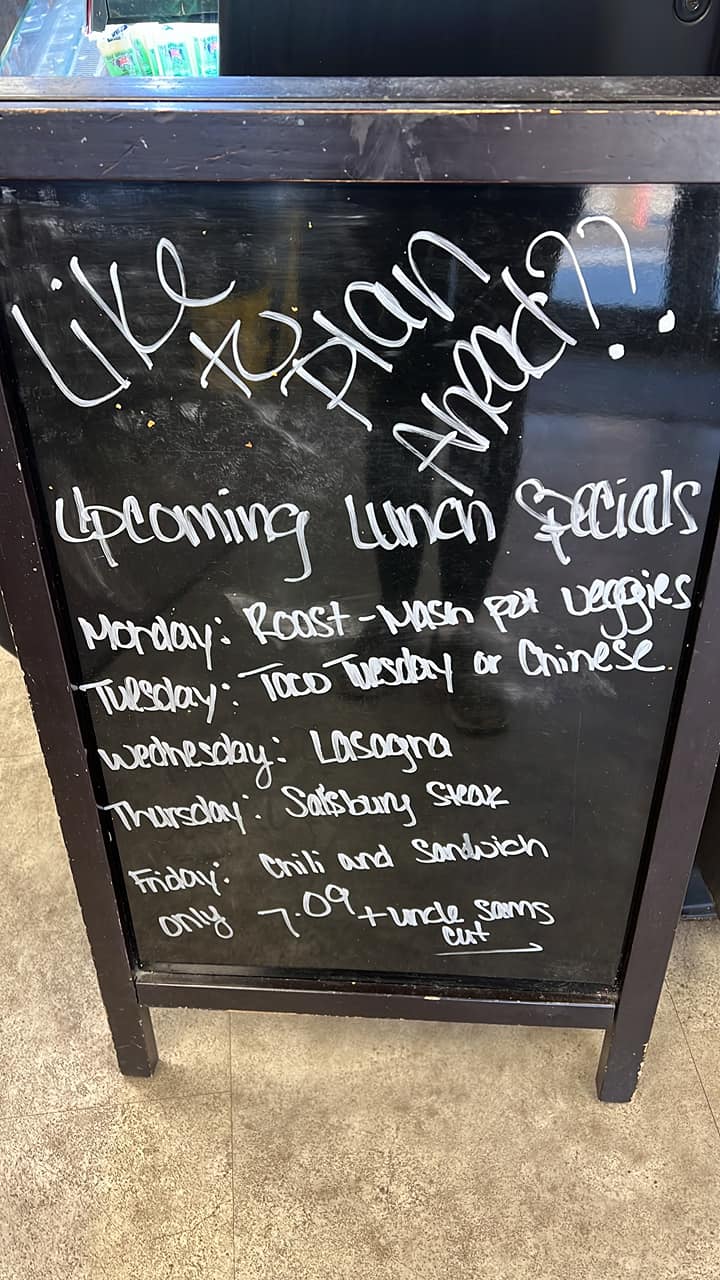 Like to plan Ahead??
Upcoming Lunch Specials
Monday: Roast - Mash pot veggies
Tuesday: Taco Tuesday or Chinese
Wednesday: Lasagna
Thursday: Salsbury Steak
Friday: Chili and Sandwich
only 7.09 + uncle sams
cut